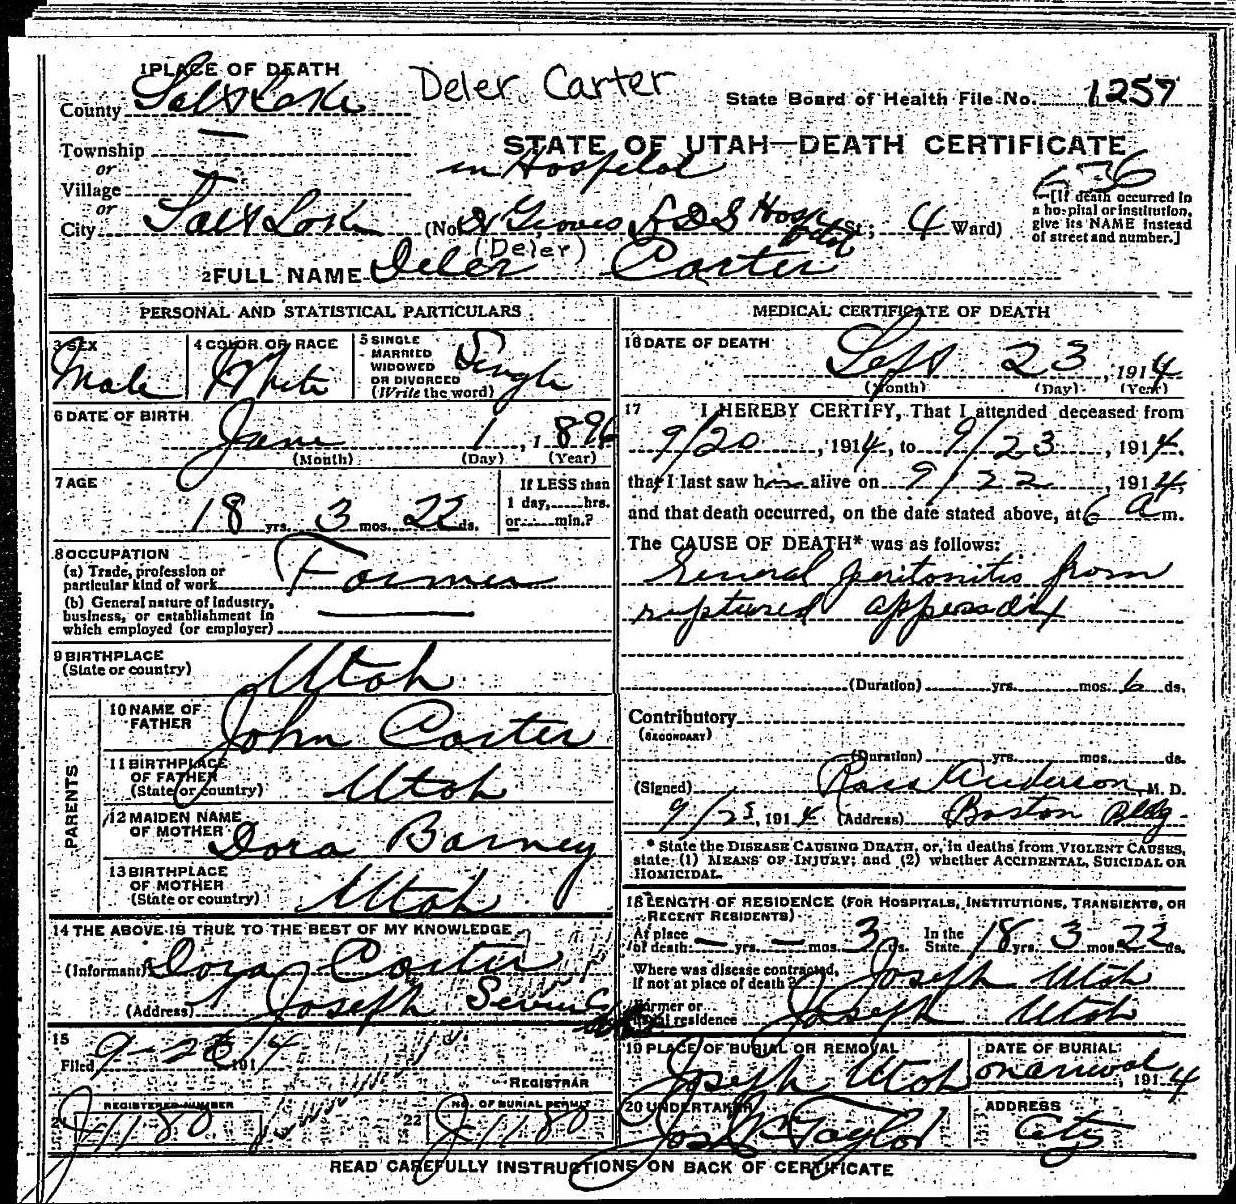 1 PLACE OF DEATH
Deler Carter
County Salt Lake
State Board of Health File No. 1257
STATE OF UTAH—DEATH CERTIFICATE
Township
or
in Hospital
636
Village
or
City Salt Lake (No. Dr Groves L D S Hospital St; 4 Ward)
[If death occurred in
a hospital or institution,
give its NAME instead
of street and number.]
(Deler)
2 FULL NAME Deler Carter
PERSONAL AND STATISTICAL PARTICULARS
3 SEX Male
4 COLOR OR RACE White
5 SINGLE
MARRIED
WIDOWED
OR DIVORCED
(Write the word) Single
6 DATE OF BIRTH
Jany 1, 1896
(Month) (Day) (Year)
7 AGE
18 yrs. 3 mos. 22 ds.
If LESS than
1 day, hrs.
or min.?
8 OCCUPATION
(a) Trade, profession or
particular kind of work Farmer
(b) General nature of industry,
business, or establishment in
which employed (or employer)
9 BIRTHPLACE
(State or country) Utah
PARENTS
10 NAME OF
FATHER John Carter
11 BIRTHPLACE
OF FATHER
(State or country) Utah
12 MAIDEN NAME
OF MOTHER Dora Barney
13 BIRTHPLACE
OF MOTHER
(State or country) Utah
14 THE ABOVE IS TRUE TO THE BEST OF MY KNOWLEDGE
(Informant) Dora Carter
(Address) Joseph Sevier Co
15
Filed 9-26 1914
REGISTRAR
REGISTERED NUMBER
21 J-1180
NO. OF BURIAL PERMIT
22 J-1180
MEDICAL CERTIFICATE OF DEATH
16 DATE OF DEATH
Sept 23, 1914
(Month) (Day) (Year)
17 I HEREBY CERTIFY, That I attended deceased from
9/20, 1914, to 9/23, 1914.
that I last saw him alive on 9/22, 1914,
and that death occurred, on the date stated above, at 6 a m.
The CAUSE OF DEATH* was as follows:
General peritonitis from
ruptured appendix
(Duration) yrs. mos. 6 ds.
Contributory
(SECONDARY)
(Duration) yrs. mos. ds.
(Signed) Ross Anderson, M. D.
9/25, 1914 (Address) Boston Bldg.
* State the DISEASE CAUSING DEATH, or, in deaths from VIOLENT CAUSES,
state (1) MEANS OF INJURY; and (2) whether ACCIDENTAL, SUICIDAL OR
HOMICIDAL.
18 LENGTH OF RESIDENCE (FOR HOSPITALS, INSTITUTIONS, TRANSIENTS, OR
RECENT RESIDENTS)
At place
of death — yrs. — mos. 3 ds. In the
State 18 yrs. 3 mos. 22 ds.
Where was disease contracted,
if not at place of death? Joseph Utah
Former or
usual residence Joseph Utah
19 PLACE OF BURIAL OR REMOVAL
Joseph Utah
DATE OF BURIAL
on arrival, 1914
20 UNDERTAKER
Jos Wm Taylor
ADDRESS
City
READ CAREFULLY INSTRUCTIONS ON BACK OF CERTIFICATE